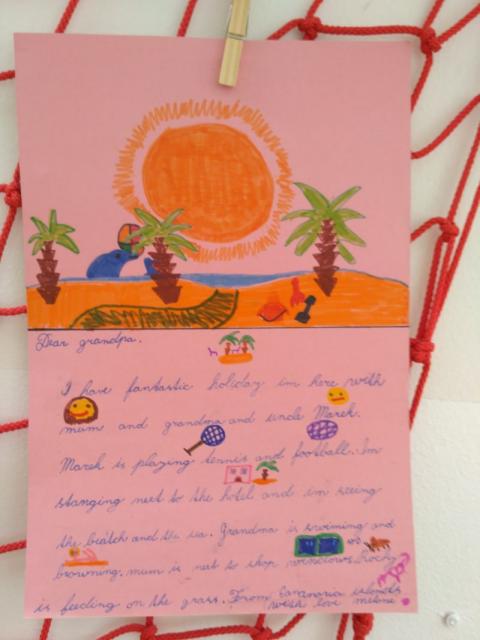 Dear grandpa.
I have fantastic holiday im here with
mum and grandma and uncle Marek.
Marek is playing tennis and football. Im
stanging next to the hotel and im seeing
the beatch and the sea. Grandma is swiming and
browning. mum is next to shop windows.
is feeding on the grass. From Canararia islands
with love melanie